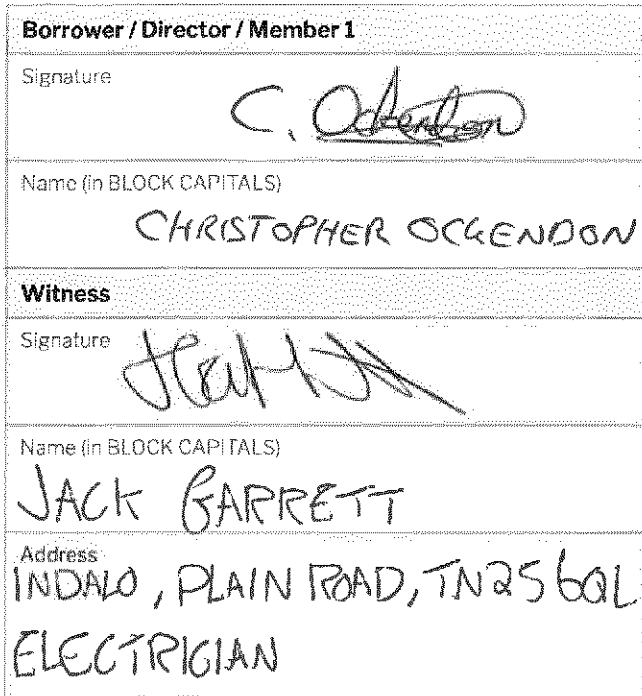 Borrower / Director / Member 1
Signature
C. Ockendon
Name (in BLOCK CAPITALS)
CHRISTOPHER OCKENDON
Witness
Signature
Name (in BLOCK CAPITALS)
JACK GARRETT
Address
INDALO, PLAIN ROAD, TN25 6QL
ELECTRICIAN